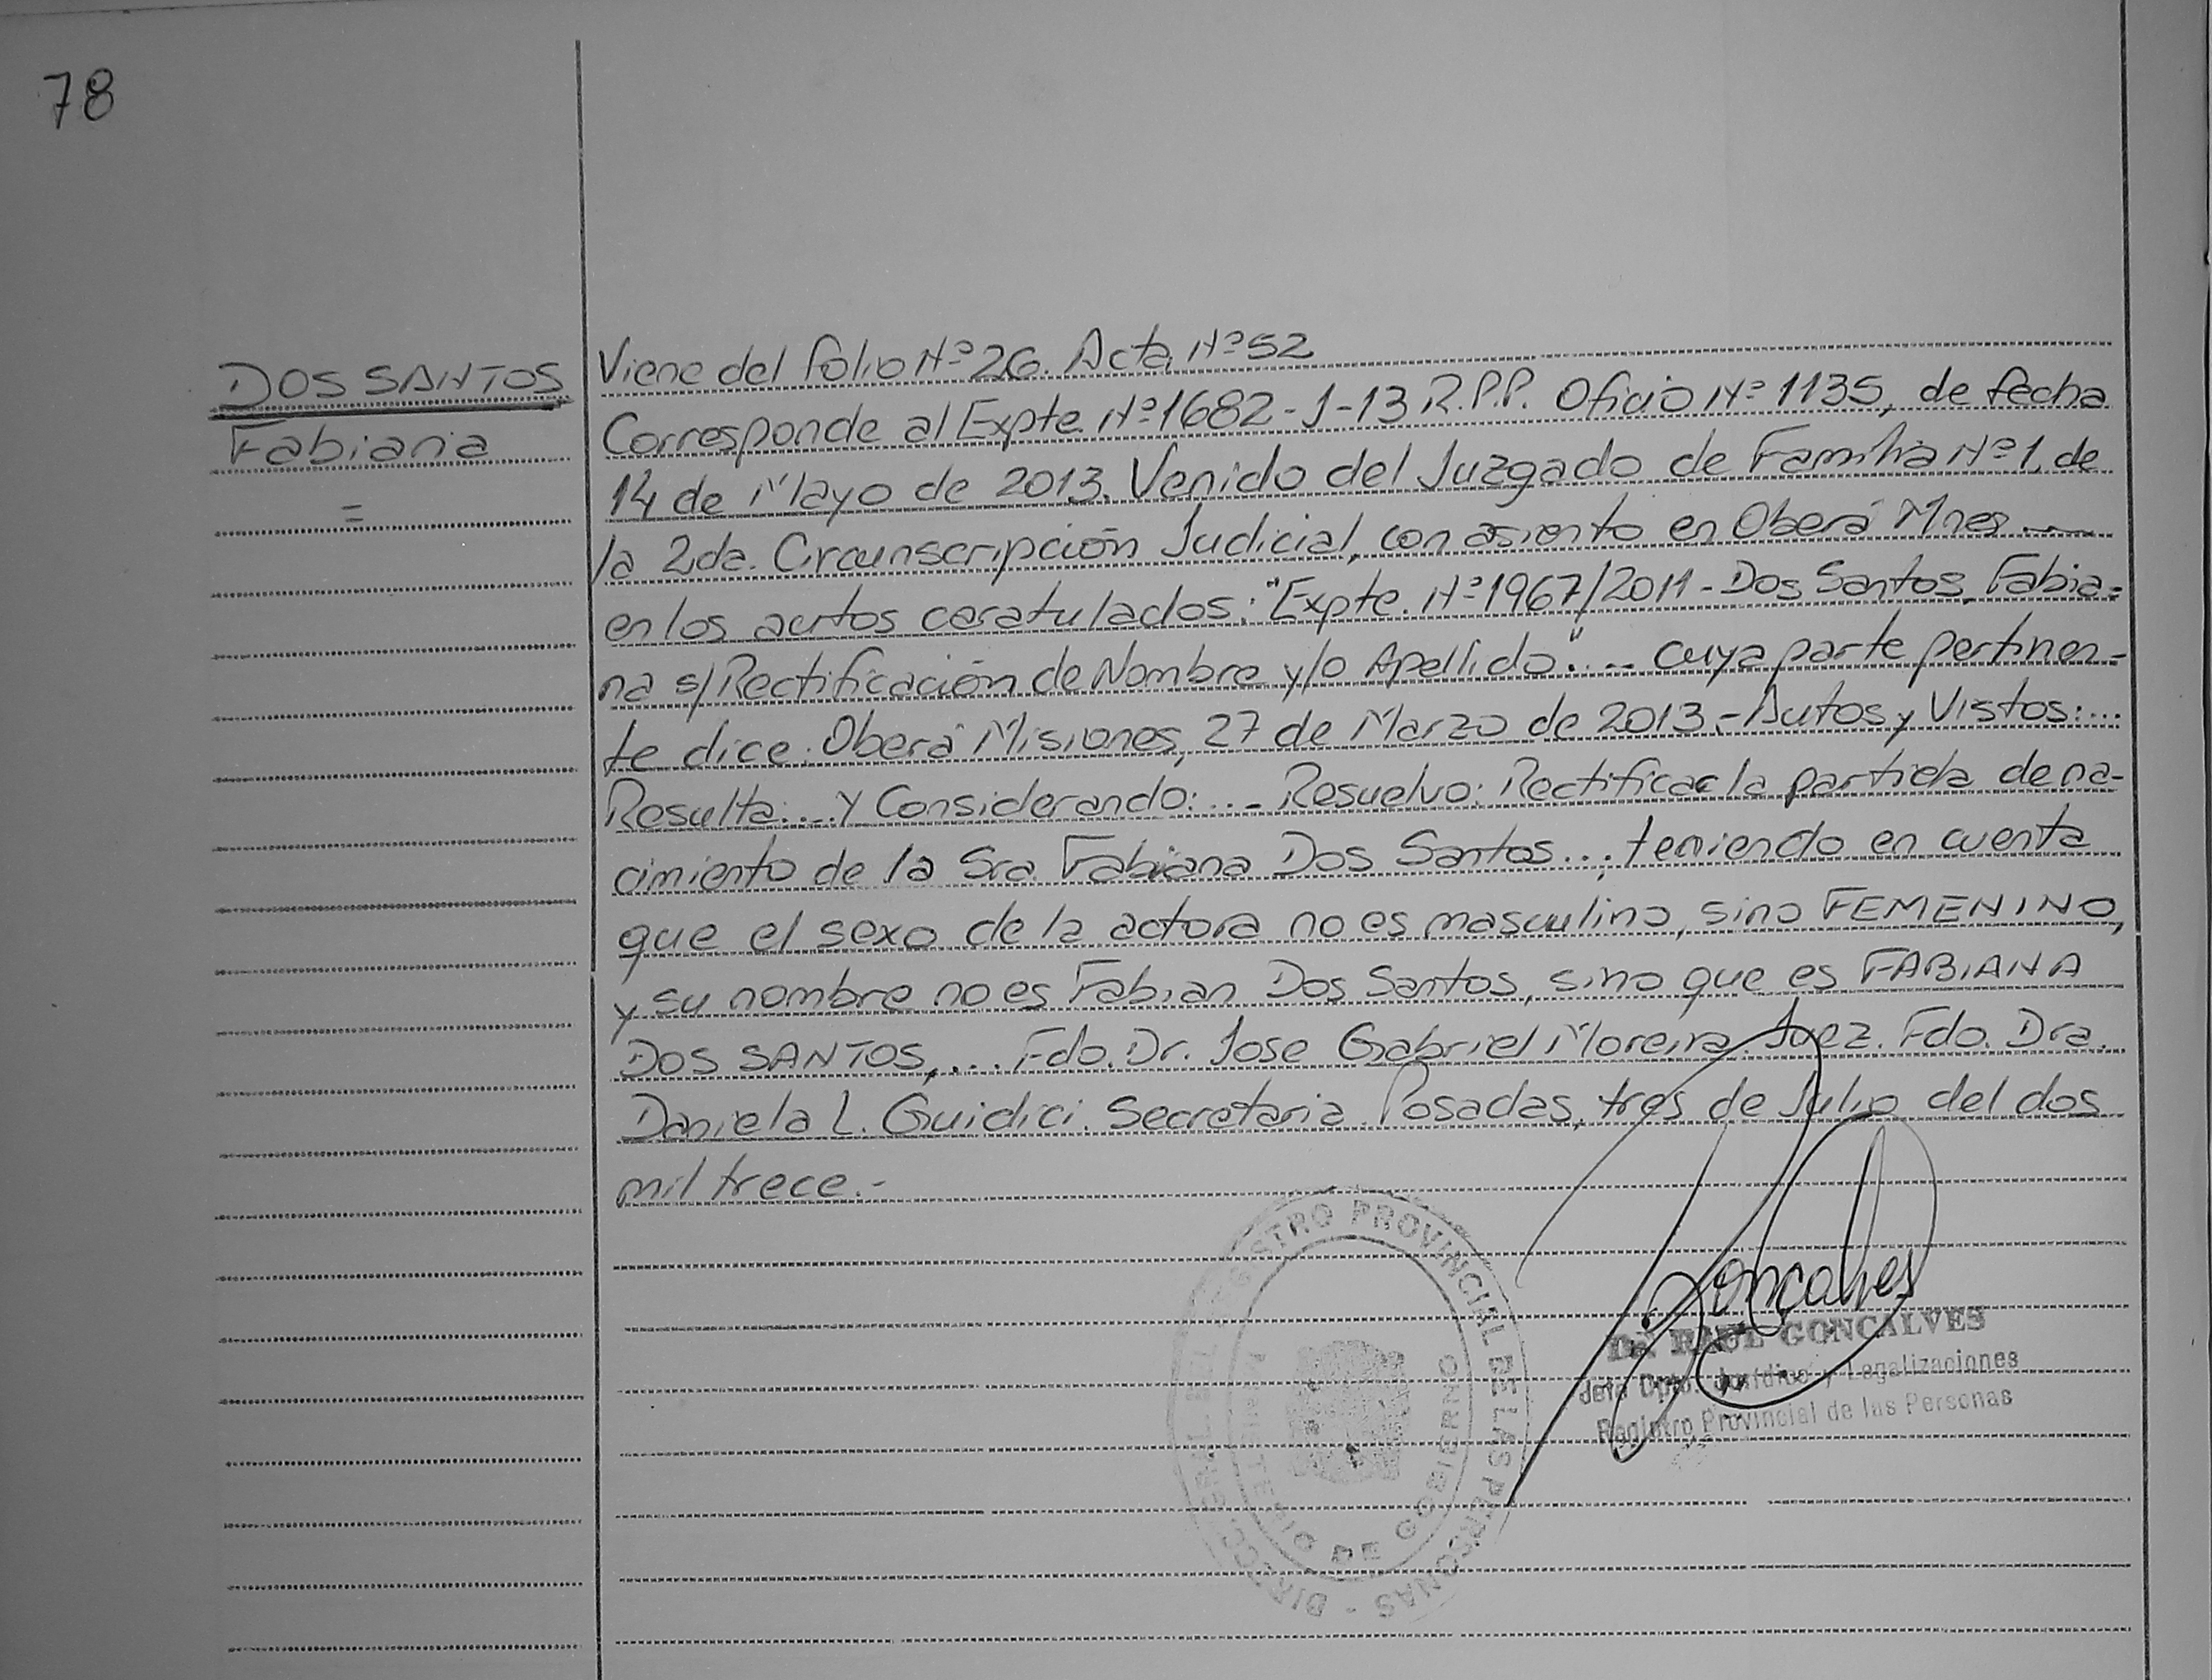 78
DOS SANTOS
Fabiana
=
Viene del folio Nº 26. Acta Nº 52
Corresponde al Expte. Nº 1682-J-13 R.P.P. Oficio Nº 1135, de fecha
14 de Mayo de 2013. Venido del Juzgado de Familia Nº 1, de
la 2da. Circunscripción Judicial, con asiento en Oberá Mnes
en los autos caratulados: "Expte. Nº 1967/2011 - Dos Santos, Fabia-
na s/Rectificación de Nombre y/o Apellido".... cuya parte pertinen-
te dice: Oberá Misiones, 27 de Marzo de 2013.- Autos y Vistos:...
Resulta:... Y Considerando:... Resuelvo: Rectificar la partida de na-
cimiento de la Sra. Fabiana Dos Santos..., teniendo en cuenta
que el sexo de la actora no es masculino, sino FEMENINO,
y su nombre no es Fabian Dos Santos, sino que es FABIANA
DOS SANTOS,... Fdo. Dr. Jose Gabriel Moreira. Juez. Fdo. Dra.
Daniela L. Guidici. Secretaria. Posadas, tres de Julio del dos
mil trece.-
REGISTRO PROVINCIAL DE LAS PERSONAS
MINISTERIO DE GOBIERNO
Goncalves
Dr. RAUL GONCALVES
Jefe Dpto. Jurídico y Legalizaciones
Registro Provincial de las Personas